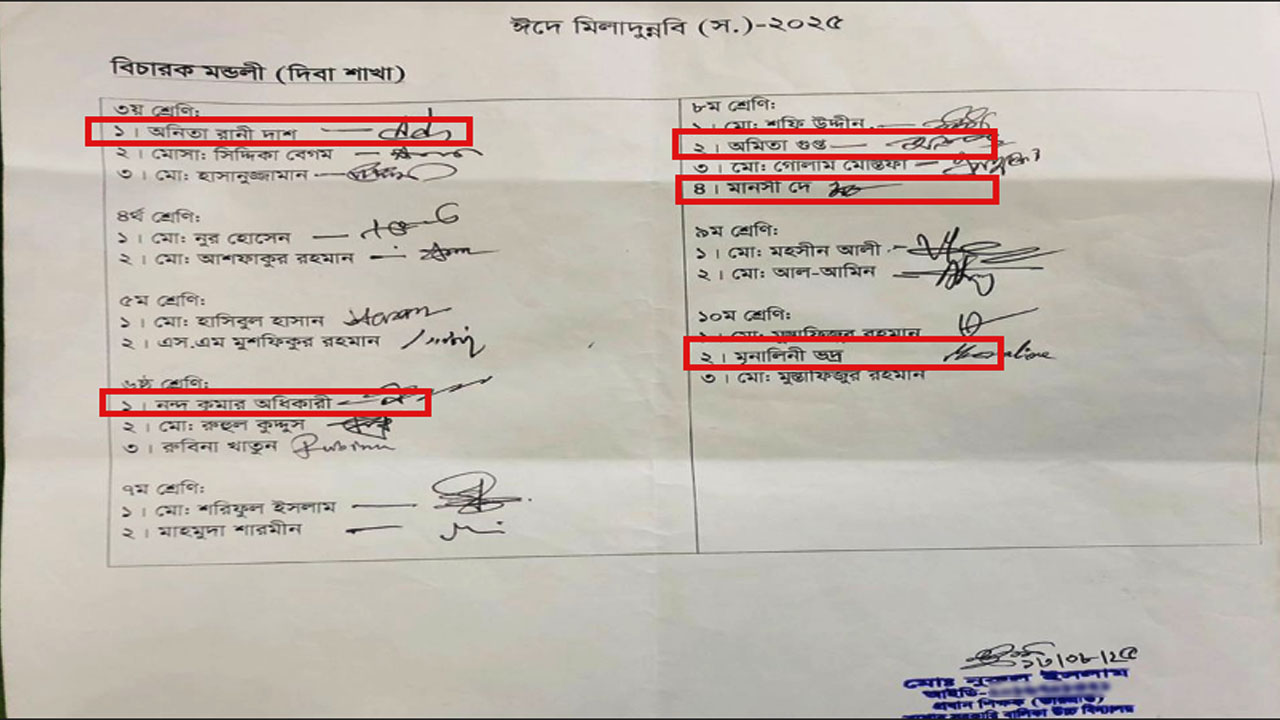 ঈদে মিলাদুন্নবি (স.)-২০২৫
বিচারক মন্ডলী (দিবা শাখা)
৩য় শ্রেণি:
১। অনিতা রানী দাশ
২। মোসা: সিদ্দিকা বেগম
৩। মো: হাসানুজ্জামান
৪র্থ শ্রেণি:
১। মো: নুর হোসেন
২। মো: আশফাকুর রহমান
৫ম শ্রেণি:
১। মো: হাসিবুল হাসান
২। এস.এম মুশফিকুর রহমান
৬ষ্ঠ শ্রেণি:
১। নন্দ কুমার অধিকারী
২। মো: রুহুল কুদ্দুস
৩। রুবিনা খাতুন Rubina
৭ম শ্রেণি:
১। মো: শরিফুল ইসলাম
২। মাহমুদা শারমীন
৮ম শ্রেণি:
১। মো: শফি উদ্দীন
২। অমিতা গুপ্ত
৩। মো: গোলাম মোস্তফা
৪। মানসী দে
৯ম শ্রেণি:
১। মো: মহসীন আলী
২। মো: আল-আমিন
১০ম শ্রেণি:
১। মো: মুস্তাফিজুর রহমান
২। মৃনালিনী ভদ্র
৩। মো: মুস্তাফিজুর রহমান
১৩/০৮/২৫
মোঃ নুরুল ইসলাম
আইডি-
প্রধান শিক্ষক (ভারপ্রাপ্ত)
সরকারি বালিকা উচ্চ বিদ্যালয়